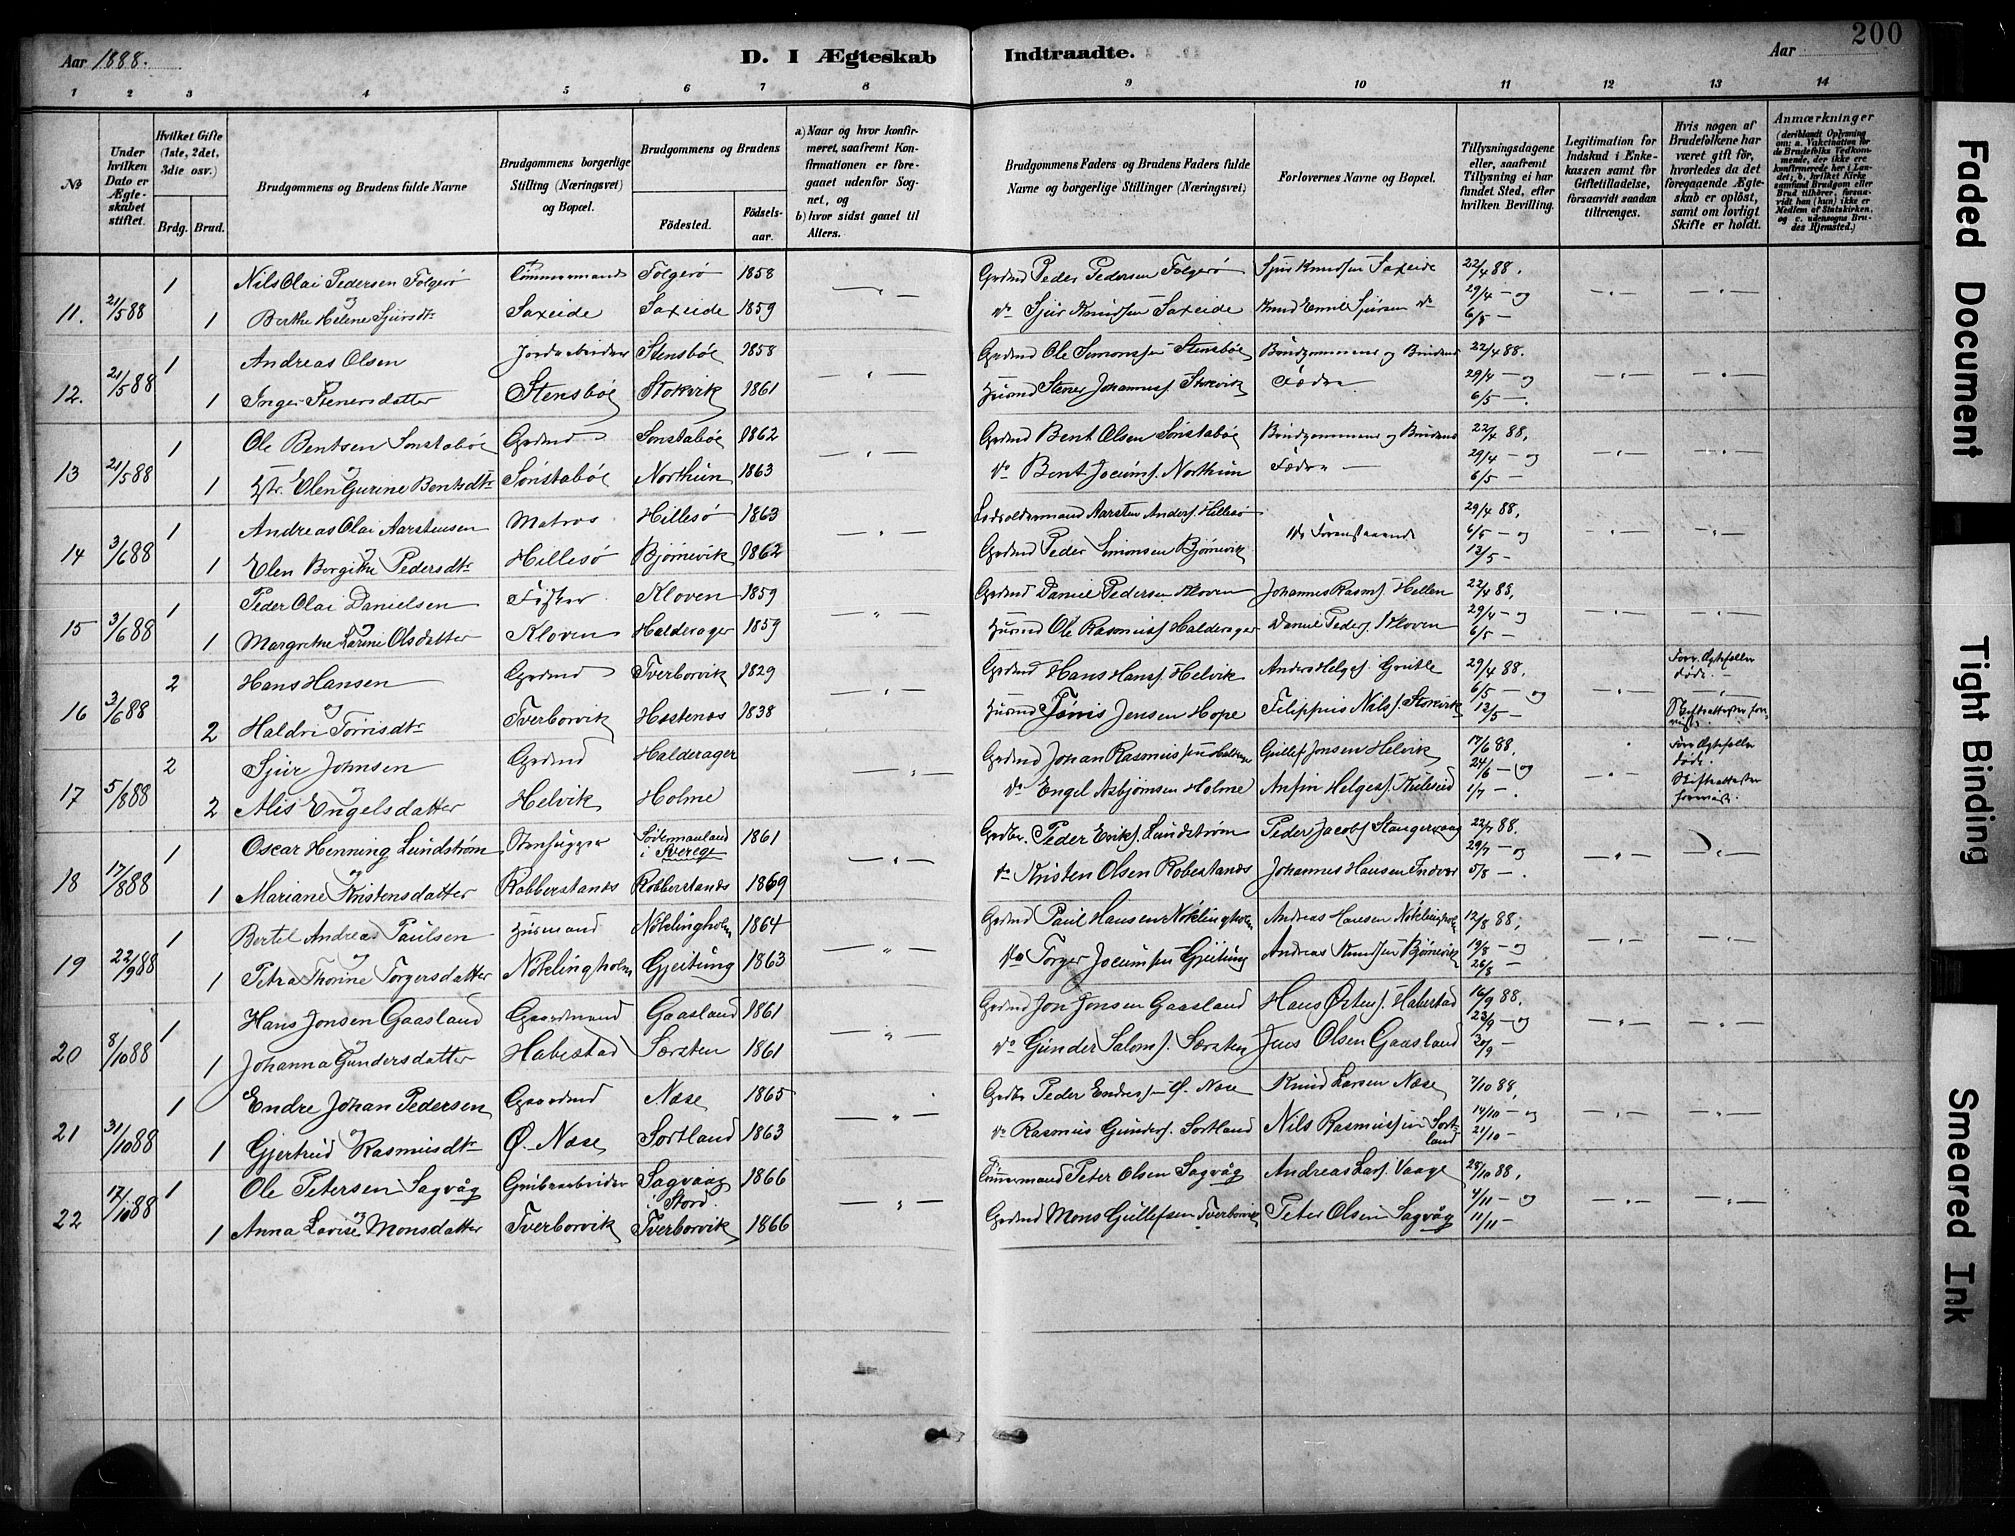 Aar 1888.
D. I Ægteskab Indtraadte.
Aar
200
1 2 3 4 5 6 7 8 9 10 11 12 13 14
No
Under hvilken Dato er Ægteskabet stiftet.
Hvilket Gifte (1ste, 2det, 3die osv.)
Brdg. Brud.
Brudgommens og Brudens fulde Navne
Brudgommens borgerlige Stilling (Næringsvei) og Bopæl.
Brudgommens og Brudens
Fødested.
Fødselsaar.
a) Naar og hvor konfirmeret, saafremt Konfirmationen er foregaaet udenfor Sognet, og
b) hvor sidst gaaet til Alters.
Brudgommens Faders og Brudens Faders fulde Navne og borgerlige Stillinger (Næringsvei)
Forlovernes Navne og Bopæl.
Tillysningsdagene eller, saafremt Tillysning ei har fundet Sted, efter hvilken Bevilling.
Legitimation for Indskud i Enkekassen samt for Giftetilladelse, forsaavidt saadan tiltrænges.
Hvis nogen af Brudefolkene har været gift før, hvorledes da det foregaaende Ægteskab er opløst, samt om lovligt Skifte er holdt.
Anmærkninger (deriblandt Oplysning om: a. Vakcination for de Brudefolks Vedkommende, der ikke ere konfirmerede her i Landet; b. hvilket Kirkesamfund Brudgom eller Brud tilhører, forsaavidt han (hun) ikke er Medlem af Statskirken, og c. udensogns Brudes Hjemsted.)
1 Nils Olai Pedersen Folgerø Tømmermand Folgerø 1858 Grdmd Peder Pedersen Folgerø Sjur Knudsen Saxeide 22/4 88.
11. 21/5 88 1 og Berthe Helene Sjursdtr Saxeide Saxeide 1859 do Sjur Knudsen Saxeide Knud Emil Sjursen do 29/4 — og 6/5 —
1 Andreas Olsen Jordarbeider Stensbøe 1858 Grdmd Ole Simonssen Stensbøe Brudgommens og Brudens 22/4 88.
12. 21/5 88 1 Inger Stenersdatter Stensbøe Stokvik 1861 Husmd Stener Johannesf. Storevik Fædre 29/4 — og 6/5 —.
1 Ole Bentsen Sønstabøe Grdmd Sønstabøe 1862 Grdmd Bent Olsen Sønstabøe Brudgommens og Brudens 22/4 88.
13 21/5 88 1 og Elen Gurine Bentsdtr Sønstabøe Northun 1863 do Bent Jocumf. Northun Fædre — 29/4 — og 6/5 —
1 Andreas Olai Aarstensen Matros Hillesø 1863 Aarsten Andersf. Hillesø 29/4 88.
14 3/6 88 1 og Elen Bergithe Pedersdtr Hillesø Bjørnevik 1862 Grdmd Peder Simonsen Bjørnevik De Foranstaaende 6/5 — og 13/5 —
1 Peder Olai Danielsen Fisker Kloven 1859 Grdmd Daniel Pedersen Kloven Johannes Rasmf. Hellen 22/4 88.
15 3/6 88 1 og Margrethe Larine Olsdatter Kloven Halderager 1859 Husmd Ole Rasmusf. Halderager Daniel Pedersf. Kloven 29/4 — og 6/5 —
2 Hans Hansen Grdmd Tverborvik 1829 Grdmd Hans Hansf. Helvik Anders Helgesf. Grutle 29/4 88. Forr. Ægtefæller døde. —
16 3/6 88 2 og Haldri Tørrisdtr Tverborvik Hestenæs 1838 Husmd Tørris Jensen Hope Filippus Nilsf. Storevik 6/5 — og 13/5 — Skifteattester forevist.
2 Sjur Johnsen Grdmd Halderager Grdmd Johan Rasmussen Gullef Jonsen Helvik 17/6 88. Forr. Ægtefæller døde.
17 5/8 88 2 og Alis Engelsdatter Helvik Holme do Engel Asbjørnsen Holme Anfin Helgesf. Kuleseid 24/6 — og 1/7 —. Skifteattester forevist.
1 Oscar Henning Lundstrøm Stenhugger Södermanland i Sverige 1861 Grdbr. Peder Eriksf. Lundstrøm Peder Jacobsf. Stangervaag 22/7 88.
18 17/8 88 1 og Mariane Kristensdatter Robberstanæs Robberstanæs 1869 do Kristen Olsen Robestanæs Johannes Hansen Indvær 29/7 — og 5/8 —.
1 Bertel Andreas Paulsen Husmand Nøklingholm 1864 Grdmd Paul Hansen Nøklingholm Andreas Hansen Nøklingholm 12/8 88.
19 22/9 88 1 og Petra Thorine Torgersdatter Nøklingholm Gjeitung 1863 do Torger Jocumsen Gjeitung Andreas Knudsen Bjørnevik 19/8 — og 26/8 —
1 Hans Jonsen Gaasland Gaardmand Gaasland 1861 Grdmd Jon Jonsen Gaasland Hans Østensf. Habestad 16/9 88.
20 8/10 88 1 og Johanna Gundersdatter Habestad Særsten 1861 do Gunder Salomf. Særsten Jens Olsen Gaasland 23/9 — og 30/9 —
1 Endre Johan Pedersen Gaardmd Næse 1865 Grdbr Peder Endresen Ø. Næse Knud Larsen Næse 7/10 88.
21 31/10 88 1 og Gjertrud Rasmusdtr Ø. Næse Sortland 1863 do Rasmus Gundersf. Sortland Nils Rasmussen Sortland 14/10 — og 21/10 —
1 Ole Petersen Sagvåg Grubearbeider Sagvaag i Stord. 1866 Tømmermand Peter Olsen Sagvåg Andreas Larsf. Vaage 28/10 88.
22 17/10 88 1 og Anna Lovise Monsdatter Tverborvik Tverborvik 1866 Grdmd Mons Gullefsen Tverborvik Peter Olsen Sagvåg 4/11 — og 11/11 —
Faded Document
Tight Binding
Smeared Ink